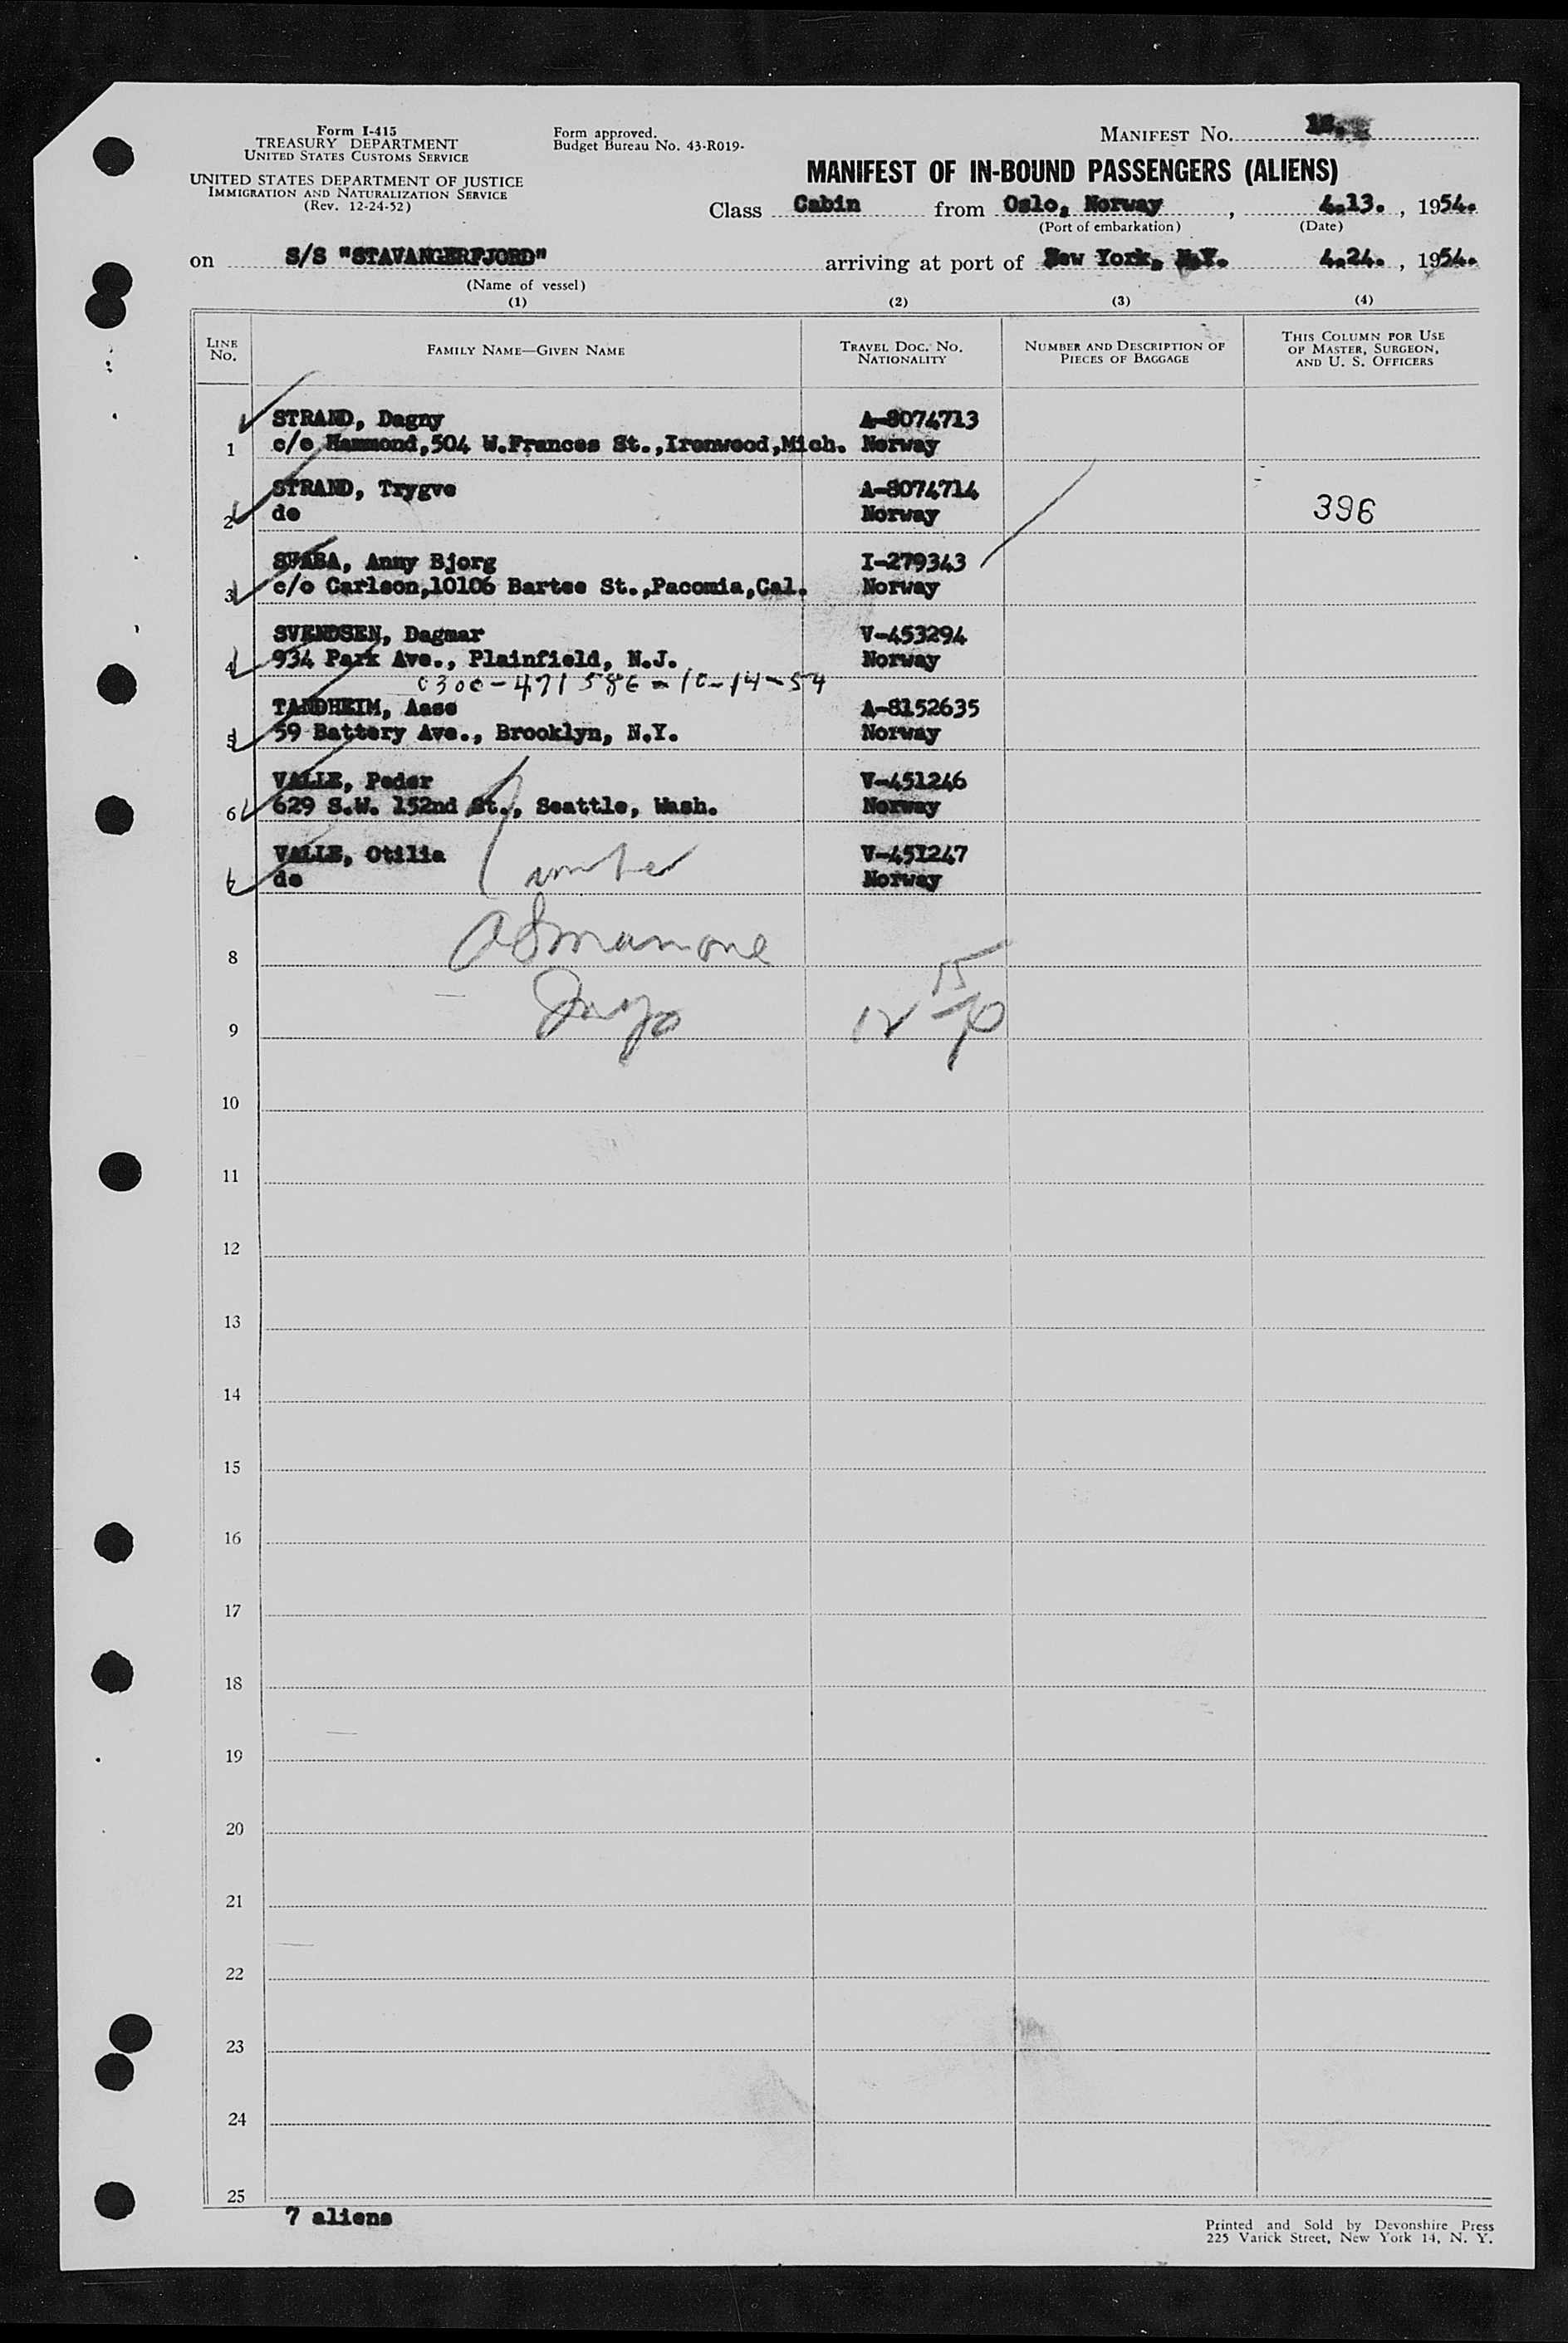 Form I-415
TREASURY DEPARTMENT
UNITED STATES CUSTOMS SERVICE
UNITED STATES DEPARTMENT OF JUSTICE
IMMIGRATION AND NATURALIZATION SERVICE
(Rev. 12-24-52)
Form approved.
Budget Bureau No. 43-R019-
MANIFEST NO.
MANIFEST OF IN-BOUND PASSENGERS (ALIENS)
Class Cabin from Oslo, Norway, 4.13., 1954.
(Port of embarkation) (Date)
on S/S "STAVANGERFJORD" arriving at port of New York, N.Y. 4.24., 1954.
(Name of vessel)
(1) (2) (3) (4)
LINE NO. FAMILY NAME—GIVEN NAME TRAVEL DOC. NO. NATIONALITY NUMBER AND DESCRIPTION OF PIECES OF BAGGAGE THIS COLUMN FOR USE OF MASTER, SURGEON, AND U. S. OFFICERS
STRAND, Dagny A-8074713
1 c/o Hammond,504 W.Frances St.,Ironwood,Mich. Norway
STRAND, Trygve A-8074714
2 do Norway 396
SVABA, Anny Bjorg I-279343
3 c/o Carlson,10106 Bartee St.,Pacomia,Cal. Norway
SVENDSEN, Dagmar V-453294
4 934 Park Ave., Plainfield, N.J. Norway
0300-471586-10-14-54
TANDHEIM, Aase A-8152635
5 59 Battery Ave., Brooklyn, N.Y. Norway
VALLE, Peder V-451246
6 629 S.W. 152nd St., Seattle, Wash. Norway
VALLE, Otilia V-451247
7 do Norway
8
9
10
11
12
13
14
15
16
17
18
19
20
21
22
23
24
25
7 aliens
Printed and Sold by Devonshire Press
225 Varick Street, New York 14, N. Y.